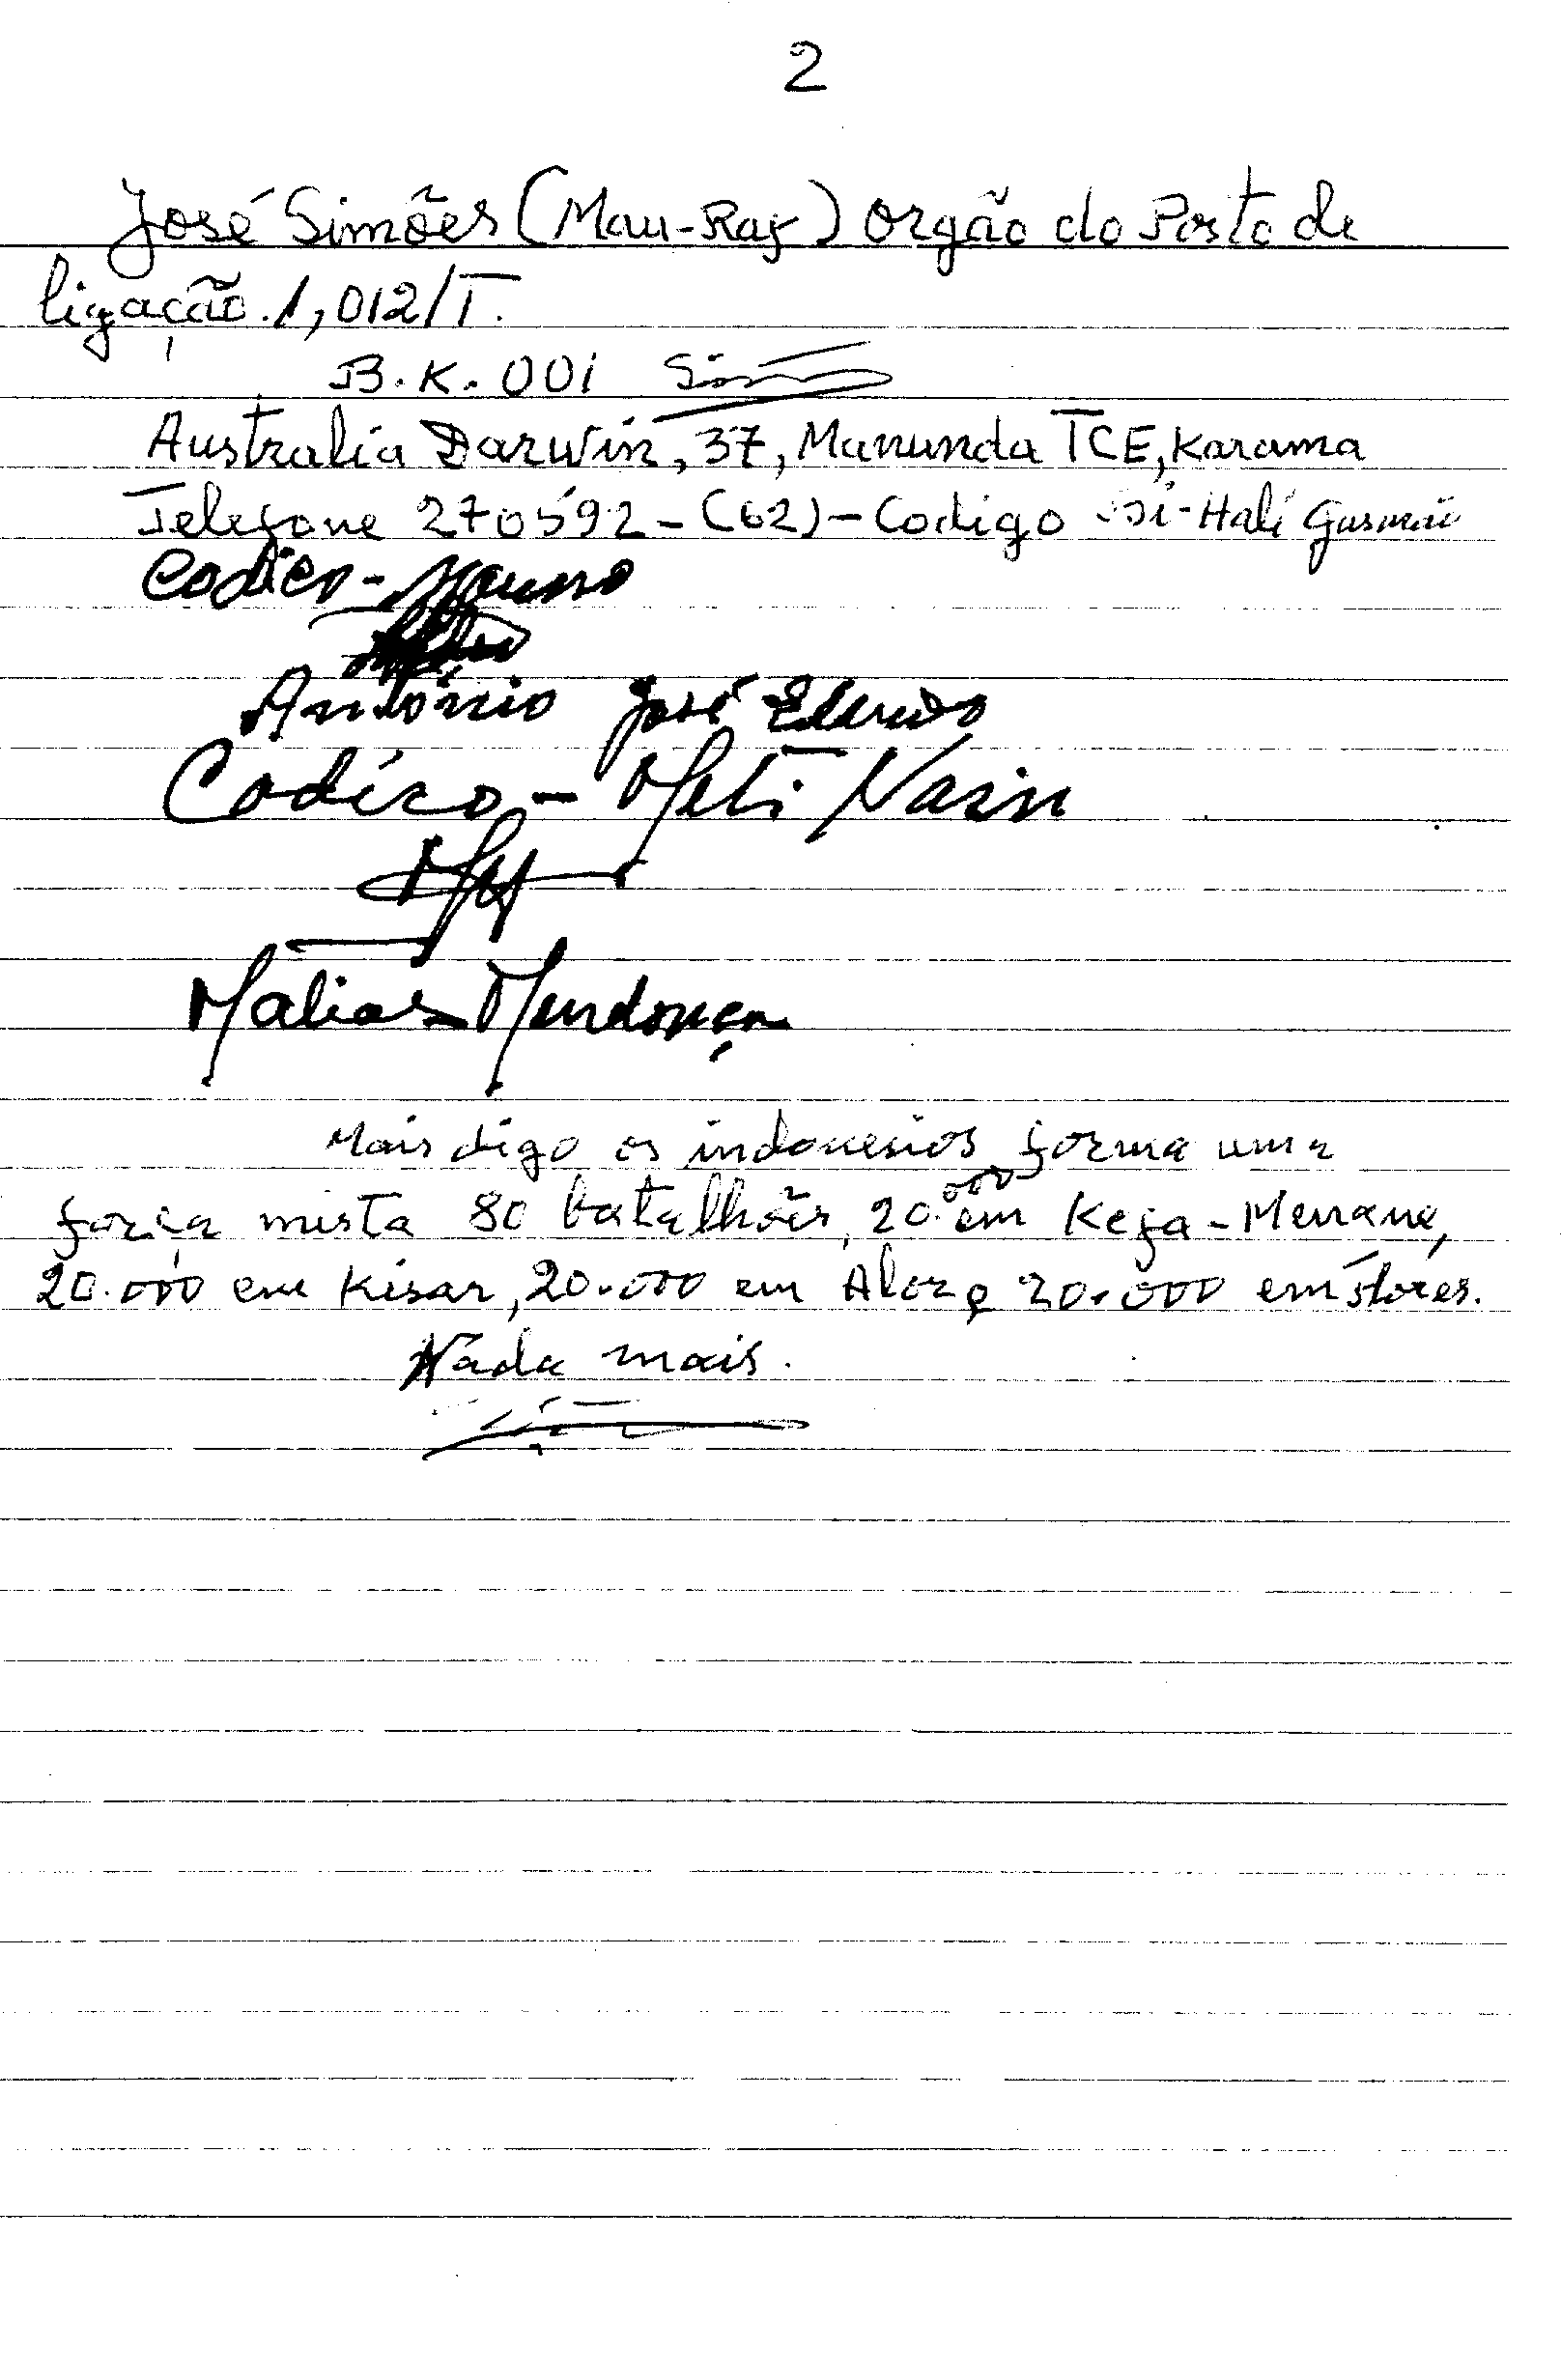 2
José Simões (Mau-Raf) orgão do Posto de
ligação. 1,012/T.
B.K. 001
Australia Darwin, 37, Manunda TCE, Karama
Telefone 270592 - (62) - Codigo Hali Gusmão
Codico -
António José
Codico - Meti Nain
Matias Mendonça
Mais digo os indonesios forma uma
força mista 80 batalhões, 20.000 em Kefa-Menane,
20.000 em Kisar, 20.000 em Alor e 20.000 em Flores.
Nada mais.